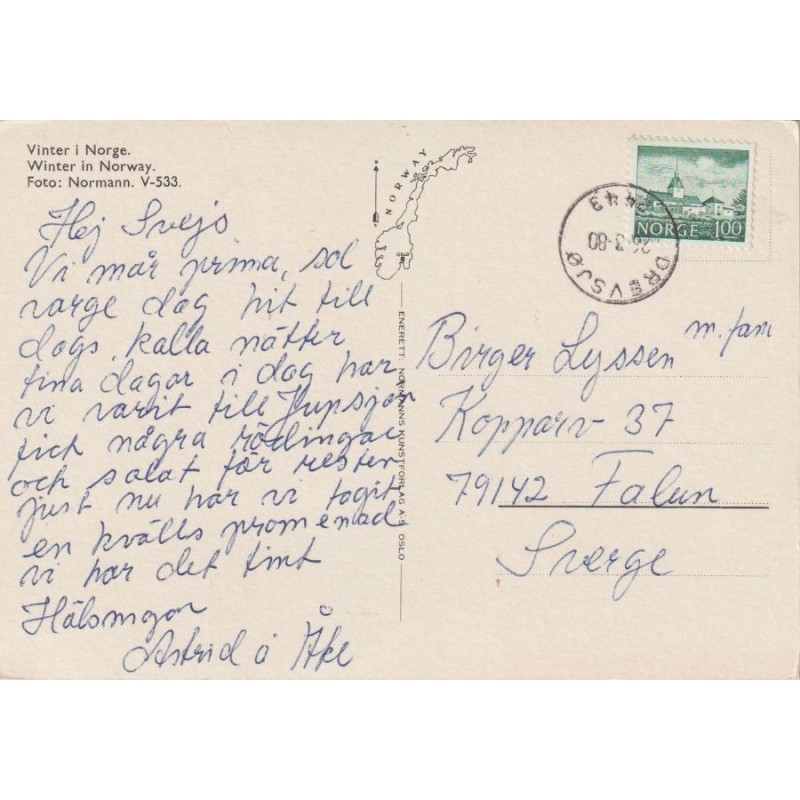 Vinter i Norge.
Winter in Norway.
Foto: Normann. V-533.
Hej Svejs
Vi mår prima, sol
varge dag hit till
dags, kalla nätter
fina dagar i dag har
vi varit till Jupsjön
fick några rödingar
och salat för resten
just nu har vi tagit
en kvälls promenad
vi har det fint
Hälsningar
Astrid å Åke
NORWAY
ENERETT: NORMANNS KUNSTFORLAG A.S. OSLO
NORGE 1.00
2443
26-3-80
DREVSJØ
Birger Lyssen m. fam
Kopparv 37
79142 Falun
Sverge